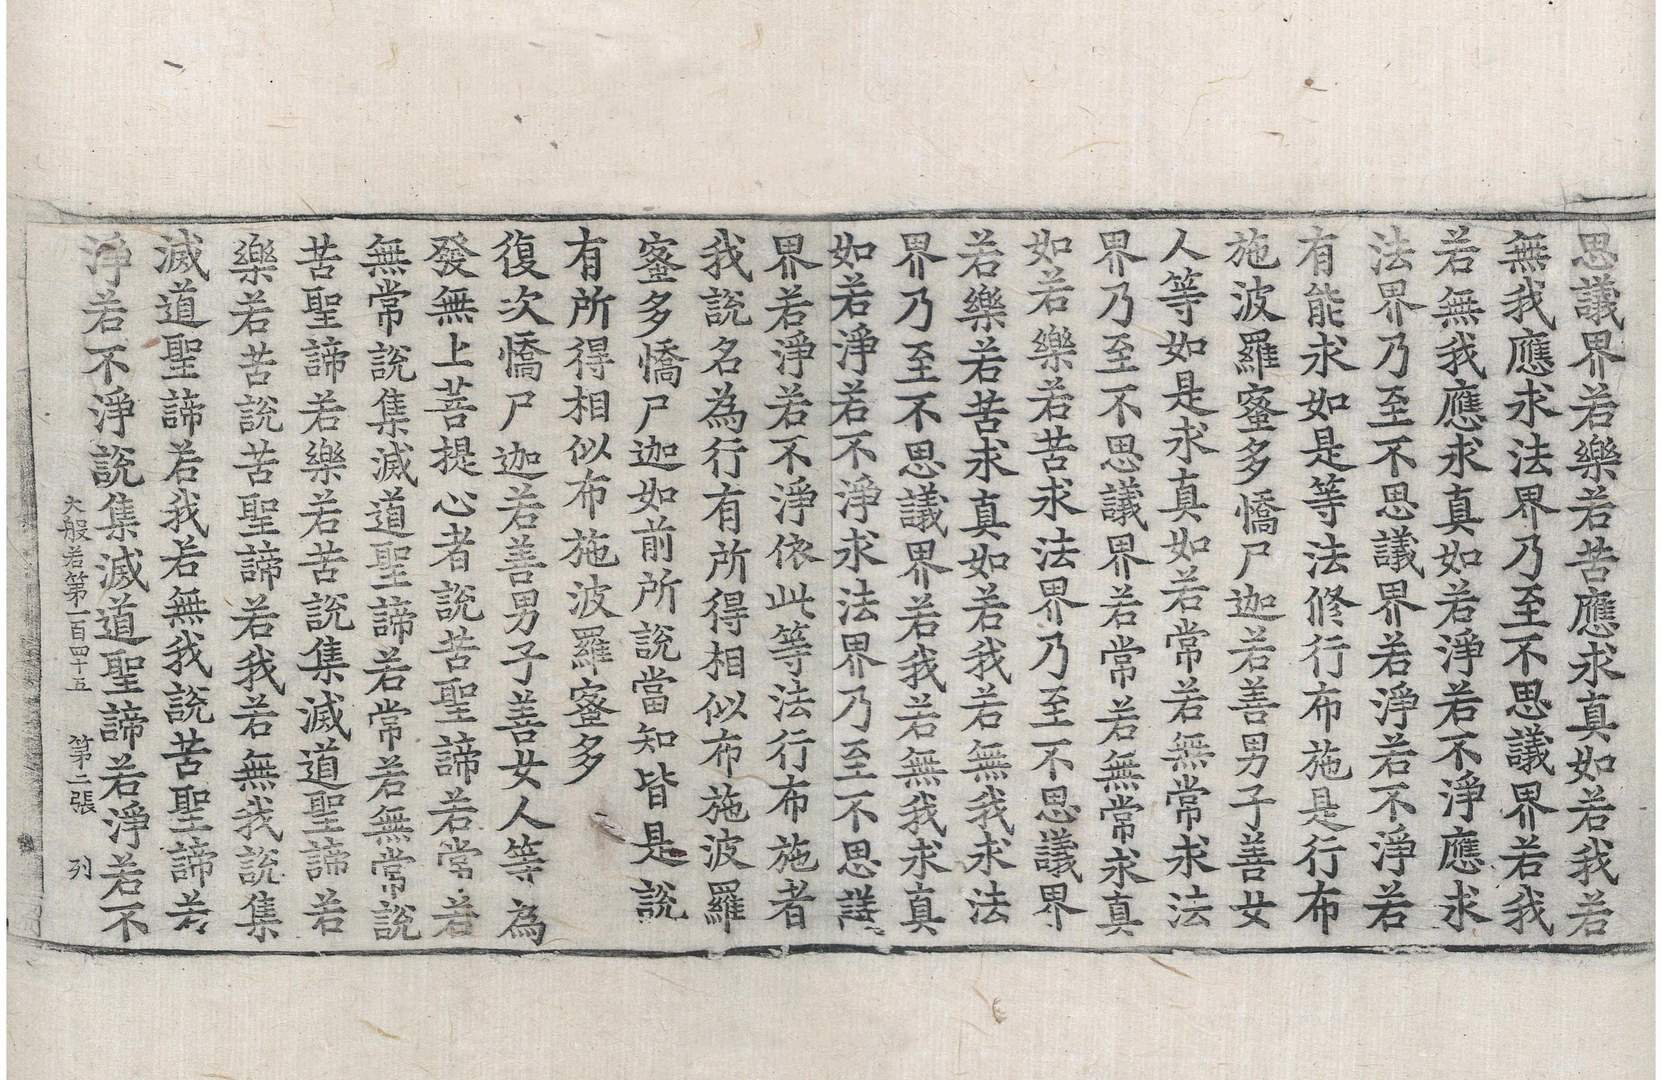 思議界若樂若苦應求真如若我若
無我應求法界乃至不思議界若我
若無我應求真如若淨若不淨應求
法界乃至不思議界若淨若不淨若
有能求如是等法修行布施是行布
施波羅蜜多憍尸迦若善男子善女
人等如是求真如若常若無常求法
界乃至不思議界若常若無常求真
如若樂若苦求法界乃至不思議界
若樂若苦求真如若我若無我求法
界乃至不思議界若我若無我求真
如若淨若不淨求法界乃至不思議
界若淨若不淨依此等法行布施者
我說名為行有所得相似布施波羅
蜜多憍尸迦如前所說當知皆是說
有所得相似布施波羅蜜多
復次憍尸迦若善男子善女人等為
發無上菩提心者說苦聖諦若常若
無常說集滅道聖諦若常若無常說
苦聖諦若樂若苦說集滅道聖諦若
樂若苦說苦聖諦若我若無我說集
滅道聖諦若我若無我說苦聖諦若
淨若不淨說集滅道聖諦若淨若不
大般若第一百四十五 第二張 列